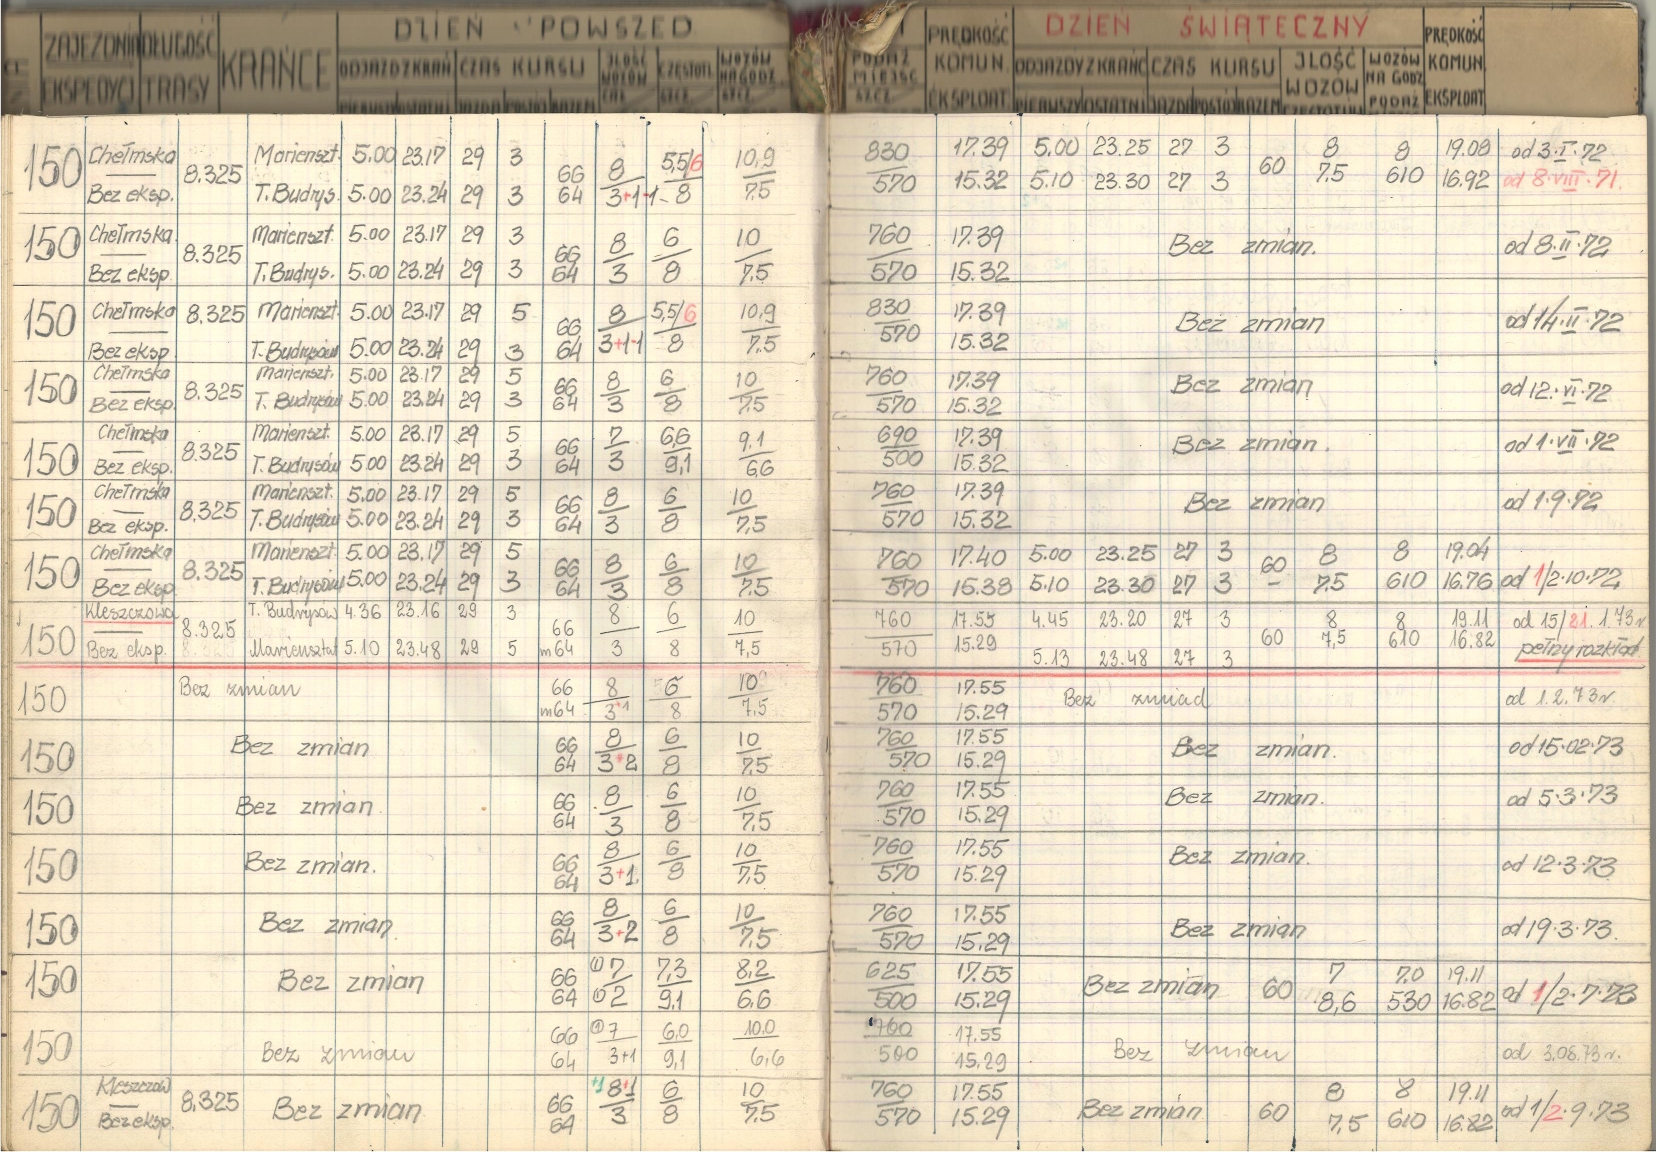 ZAJEZDNIA DŁUGOŚĆ KRAŃCE DZIEŃ POWSZED PRĘDKOŚĆ DZIEŃ ŚWIĄTECZNY PRĘDKOŚĆ
EKSPEDYCJ TRASY ODJAZD Z KRAŃ CZAS KURSU ILOŚĆ WOZÓW CZĘSTOTL. WOZÓW NA GODZ. PODAŻ MIEJSC KOMUN. ODJAZDY Z KRAŃC CZAS KURSU ILOŚĆ WOZÓW WOZÓW NA GODZ. KOMUN.
PIERWSZY OSTATNI JAZDA POSTÓJ RAZEM SZCZ. SZCZ. SZCZ. EKSPLOAT. PIERWSZY OSTATNI JAZDA POSTÓJ RAZEM CZĘSTOTLIW PODAŻ EKSPLOAT.
150 Chełmska 8.325 Marienszt. 5.00 23.17 29 3 66 8 5,5/6 10,9 830 17.39 5.00 23.25 27 3 60 8 8 19.08 od 3·I·72
Bez eksp. T. Budrys. 5.00 23.24 29 3 64 3+1-1- 8 7,5 570 15.32 5.10 23.30 27 3 7.5 610 16.92 od 8·VIII·71.
150 Chełmska 8.325 Marienszt. 5.00 23.17 29 3 66 8 6 10 760 17.39 Bez zmian. od 8·II·72
Bez eksp. T. Budrys. 5.00 23.24 29 3 64 3 8 7,5 570 15.32
150 Chełmska 8.325 Marienszt. 5.00 23.17 29 5 66 8 5,5/6 10,9 830 17.39 Bez zmian od 14·II·72
Bez eksp. T. Budrysów 5.00 23.24 29 3 64 3+1-1 8 7,5 570 15.32
150 Chełmska 8.325 Marienszt. 5.00 23.17 29 5 66 8 6 10 760 17.39 Bez zmian od 12·VI·72
Bez eksp. T. Budrysów 5.00 23.24 29 3 64 3 8 7,5 570 15.32
150 Chełmska 8.325 Marienszt. 5.00 23.17 29 5 66 7 6,6 9,1 690 17.39 Bez zmian. od 1·VII·72
Bez eksp. T. Budrysów 5.00 23.24 29 3 64 3 9,1 66 500 15.32
150 Chełmska 8.325 Marienszt. 5.00 23.17 29 5 66 8 6 10 760 17.39 Bez zmian od 1·9·72
Bez eksp. T. Budrysów 5.00 23.24 29 3 64 3 8 7,5 570 15.32
150 Chełmska 8.325 Marienszt. 5.00 23.17 29 5 66 8 6 10 760 17.40 5.00 23.25 27 3 60 8 8 19.04
Bez eksp. T. Budrysów 5.00 23.24 29 3 64 3 8 7,5 570 15.38 5.10 23.30 27 3 – 7,5 610 16.76 od 1/2·10·72
150 Kleszczowa 8.325 T. Budrysów 4.36 23.16 29 3 66 8 6 10 760 17.55 4.45 23.20 27 3 60 8 8 19.11 od 15/21.1.73r
Bez eksp. Mariensztat 5.10 23.48 29 5 m64 3 8 7,5 570 15.29 5.13 23.48 27 3 7,5 610 16.82 pełny rozkład
150 Bez zmian 66 8 6 10 760 17.55 Bez zmiad od 1.2.73r.
m64 3+1 8 7,5 570 15.29
150 Bez zmian 66 8 6 10 760 17.55 Bez zmian. od 15·02·73
64 3+2 8 7,5 570 15.29
150 Bez zmian. 66 8 6 10 760 17.55 Bez zmian. od 5·3·73
64 3 8 7,5 570 15.29
150 Bez zmian. 66 8 6 10 760 17.55 Bez zmian. od 12·3·73
64 3+1 8 7,5 570 15.29
150 Bez zmian 66 8 6 10 760 17.55 Bez zmian od 19·3·73.
64 3+2 8 7,5 570 15.29
150 Bez zmian 66 (1)7 7,3 8,2 625 17.55 Bez zmian 60 7 7.0 19.11 od 1/2·7·73
64 (1)2 9,1 6,6 500 15.29 8,6 530 16.82
150 Bez zmian 66 (1)7 6,0 10,0 760 17.55 Bez zmian od 3.08.73r.
64 3+1 9,1 6,6 500 15.29
150 Kleszczow 8.325 Bez zmian 66 +1 8+1 6 10 760 17.55 Bez zmian 60 8 8 19.11 od 1/2·9·73
Bez eksp. 64 3 8 7,5 570 15.29 7,5 610 16.82